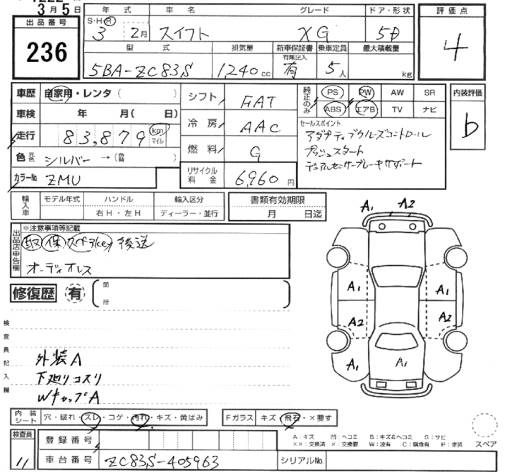 3月5日
出品番号
236
年式
車名
グレード
ドア・形状
評価点
S・H・R
3 2月
スイフト
XG
5D
4
型式
排気量
新車保証書
有
乗車定員
最大積載量
5BA-ZC83S
1240cc
5人
kg
車歴 自家用・レンタ( )
車検 年 月( 日)
走行 83,879 km マイル
色 シルバー→(
カラーNo. ZMU
シフト FAT
冷房 AAC
燃料 G
リサイクル料金 6,960円
純正のみ
PS PW AW SR
ABS エアB TV ナビ
セールスポイント
アダプティブクルーズコントロール
プッシュスタート
デュアルセンサーブレーキサポート
内装評価
b
輸入車
モデル年式
ハンドル
右H・左H
輸入区分
ディーラー・並行
書類有効期限
月 日迄
出品店申告欄
※注意事項等記載
後送
オーディオレス
修復歴 有
箇所
検査員記入欄
外装A
下廻りコスリ
WキャップA
A1 A2
A1 A1
A2 A2
A1
内装シート
穴・破れ・スレ・コゲ・汚れ・キズ・黄ばみ
Fガラス キズ・飛石・×要す
検査員
11
登録番号
車台番号 ZC83S-405963
シリアルNo.
A:キズ
スペア